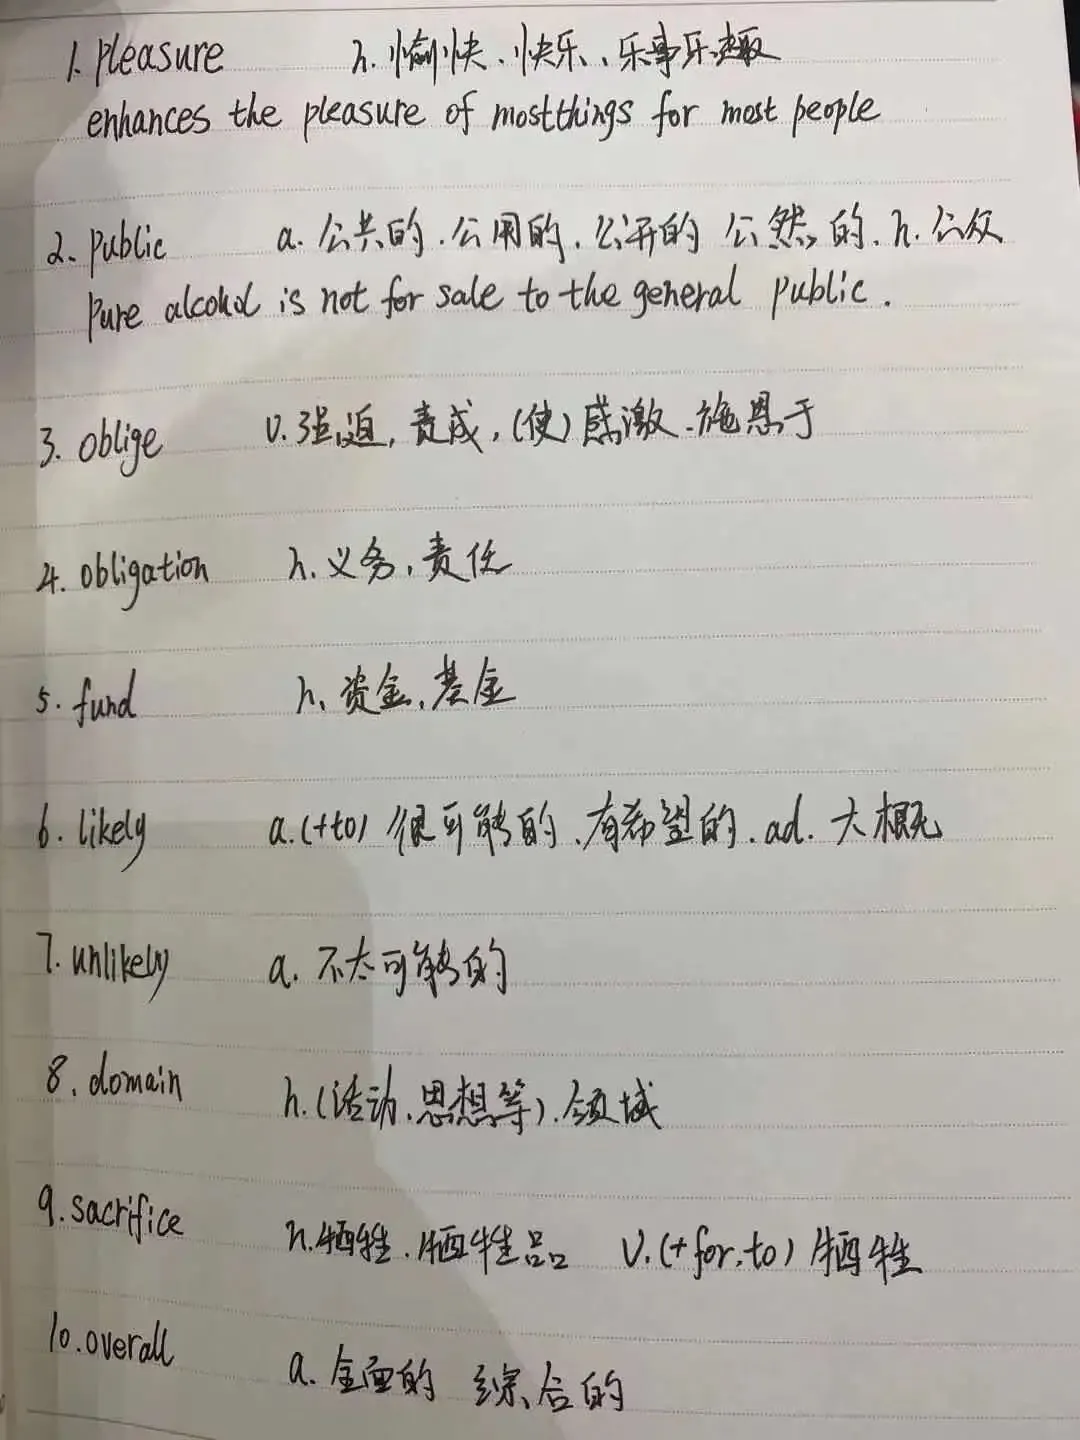 1. pleasure n. 愉快、快乐、乐事乐趣
enhances the pleasure of most things for most people
2. public a. 公共的.公用的.公开的 公然的.n.公众
Pure alcohol is not for sale to the general public.
3. oblige v.强迫,责成,(使)感激.施恩于
4. obligation n.义务,责任
5. fund n.资金,基金
6. likely a.(+to) 很可能的.有希望的.ad. 大概
7. unlikely a. 不太可能的
8. domain n.(活动.思想等).领域
9. sacrifice n.牺牲.牺牲品 v.(+for,to)牺牲
10. overall a. 全面的 综合的